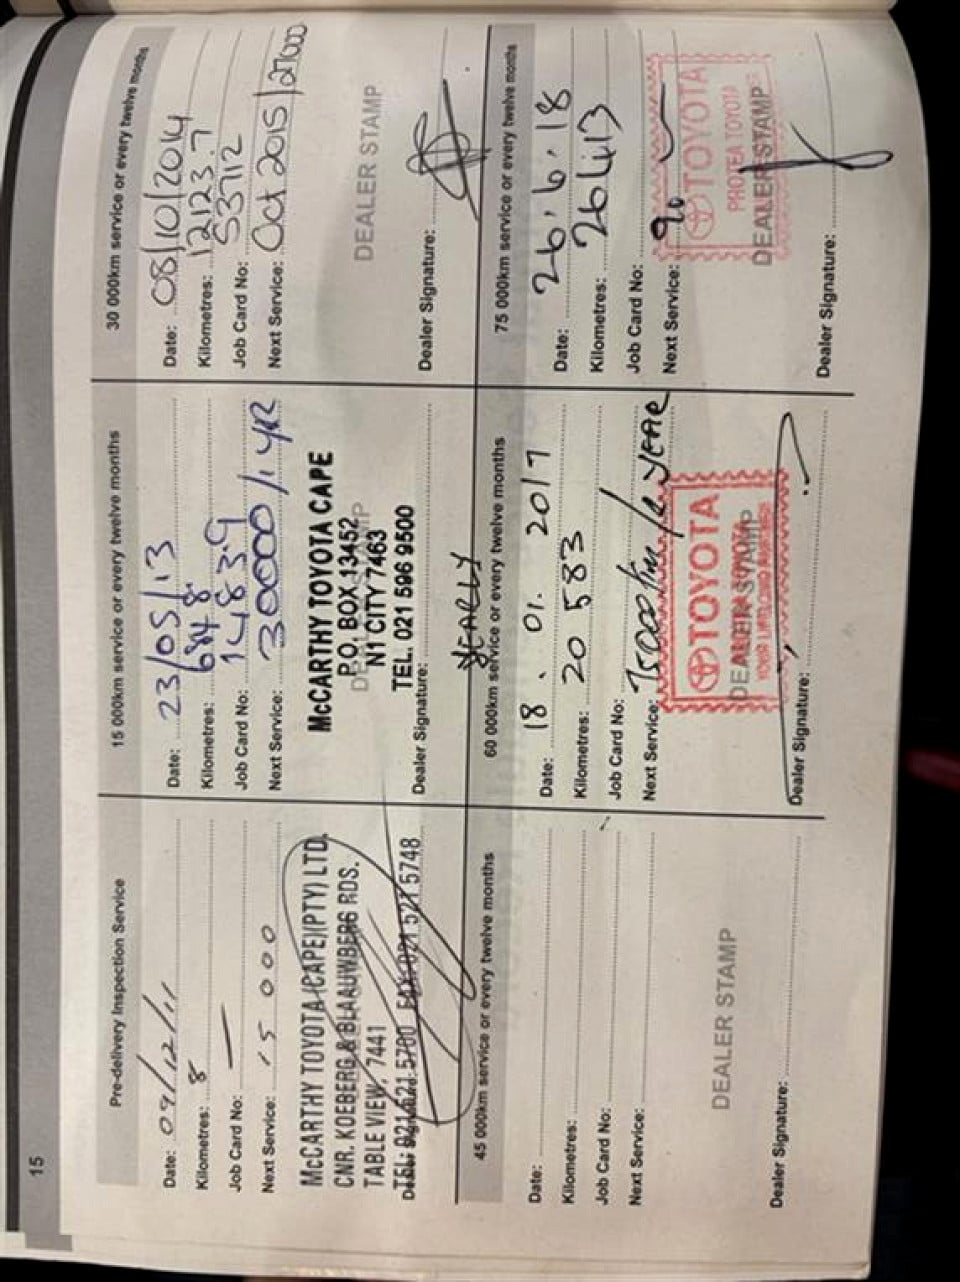 15
Pre-delivery Inspection Service
Date: 09/12/11
Kilometres: 8
Job Card No: —
Next Service: 15 000
McCARTHY TOYOTA (CAPE)(PTY) LTD.
CNR. KOEBERG & BLAAUWBERG RDS.
TABLE VIEW, 7441
TEL: 021 521 5700 FAX: 021 521 5748
Dealer Signature:
15 000km service or every twelve months
Date: 23/05/13
Kilometres:
Job Card No: 14839
Next Service: 30000/1 YR
McCARTHY TOYOTA CAPE
P.O. BOX 13452
N1 CITY 7463
DEALER STAMP
TEL. 021 596 9500
Dealer Signature:
30 000km service or every twelve months
Date: 08/10/2014
Kilometres: 12123.7
Job Card No: 53712
Next Service: Oct 2015/27000
DEALER STAMP
Dealer Signature:
45 000km service or every twelve months
Date:
Kilometres:
Job Card No:
Next Service:
DEALER STAMP
Dealer Signature:
YEARLY
60 000km service or every twelve months
Date: 18.01.2017
Kilometres: 20 583
Job Card No:
Next Service:
TOYOTA
DEALER STAMP
Dealer Signature:
75 000km service or every twelve months
Date: 26.6.18
Kilometres:
Job Card No:
Next Service: 90
TOYOTA
PROTEA TOYOTA
DEALER STAMP
Dealer Signature: